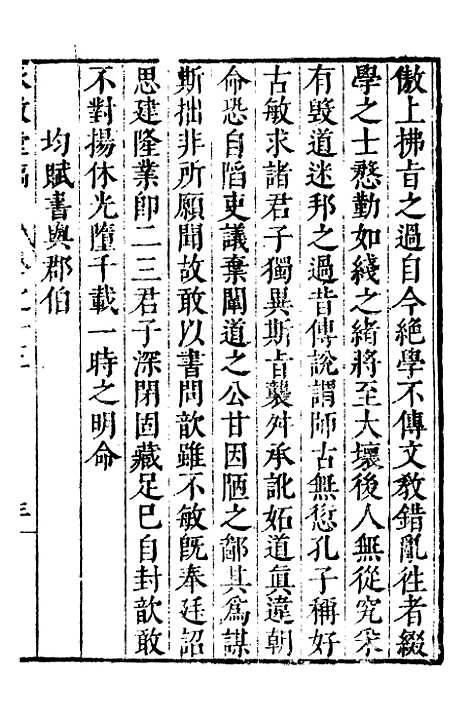 傲上拂㫖之過自今絶學不傳文敎錯亂徃者綴
學之士慭勤如綫之緒將至大壞後人無從究宷
有毀道迷邦之過昔傳說謂師古無愆孔子稱好
古敏求諸君子獨異斯㫖襲舛承訛妬道眞違朝
命恐自陷吏議棄闡道之公甘因陋之鄙其爲謀
斯拙非所願聞故敢以書問歆雖不敏旣奉廷詔
思建隆業即二三君子深閉固藏足已自封歆敢
不對揚休光隳千載一時之明命
均賦書與郡伯